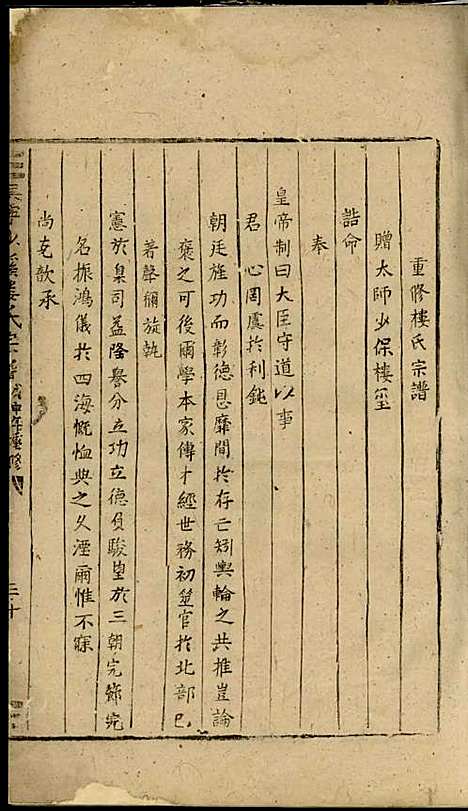 重修樓氏宗譜
贈太師少保樓璽
誥命
奉
皇帝制曰大臣守道以事
君　心罔虞於利鈍
朝廷旌功而彰德恩靡間於存亡矧輿論之共推豈論
襃之可後爾學本家傳才經世務初筮官於北部已
著聲稱旋執
憲於臬司益隆譽分立功立德負駿望於三朝完節完
名振鴻儀於四海慨恤典之久湮爾惟不寐
尚克歆承
樓氏宗譜
重修
三十